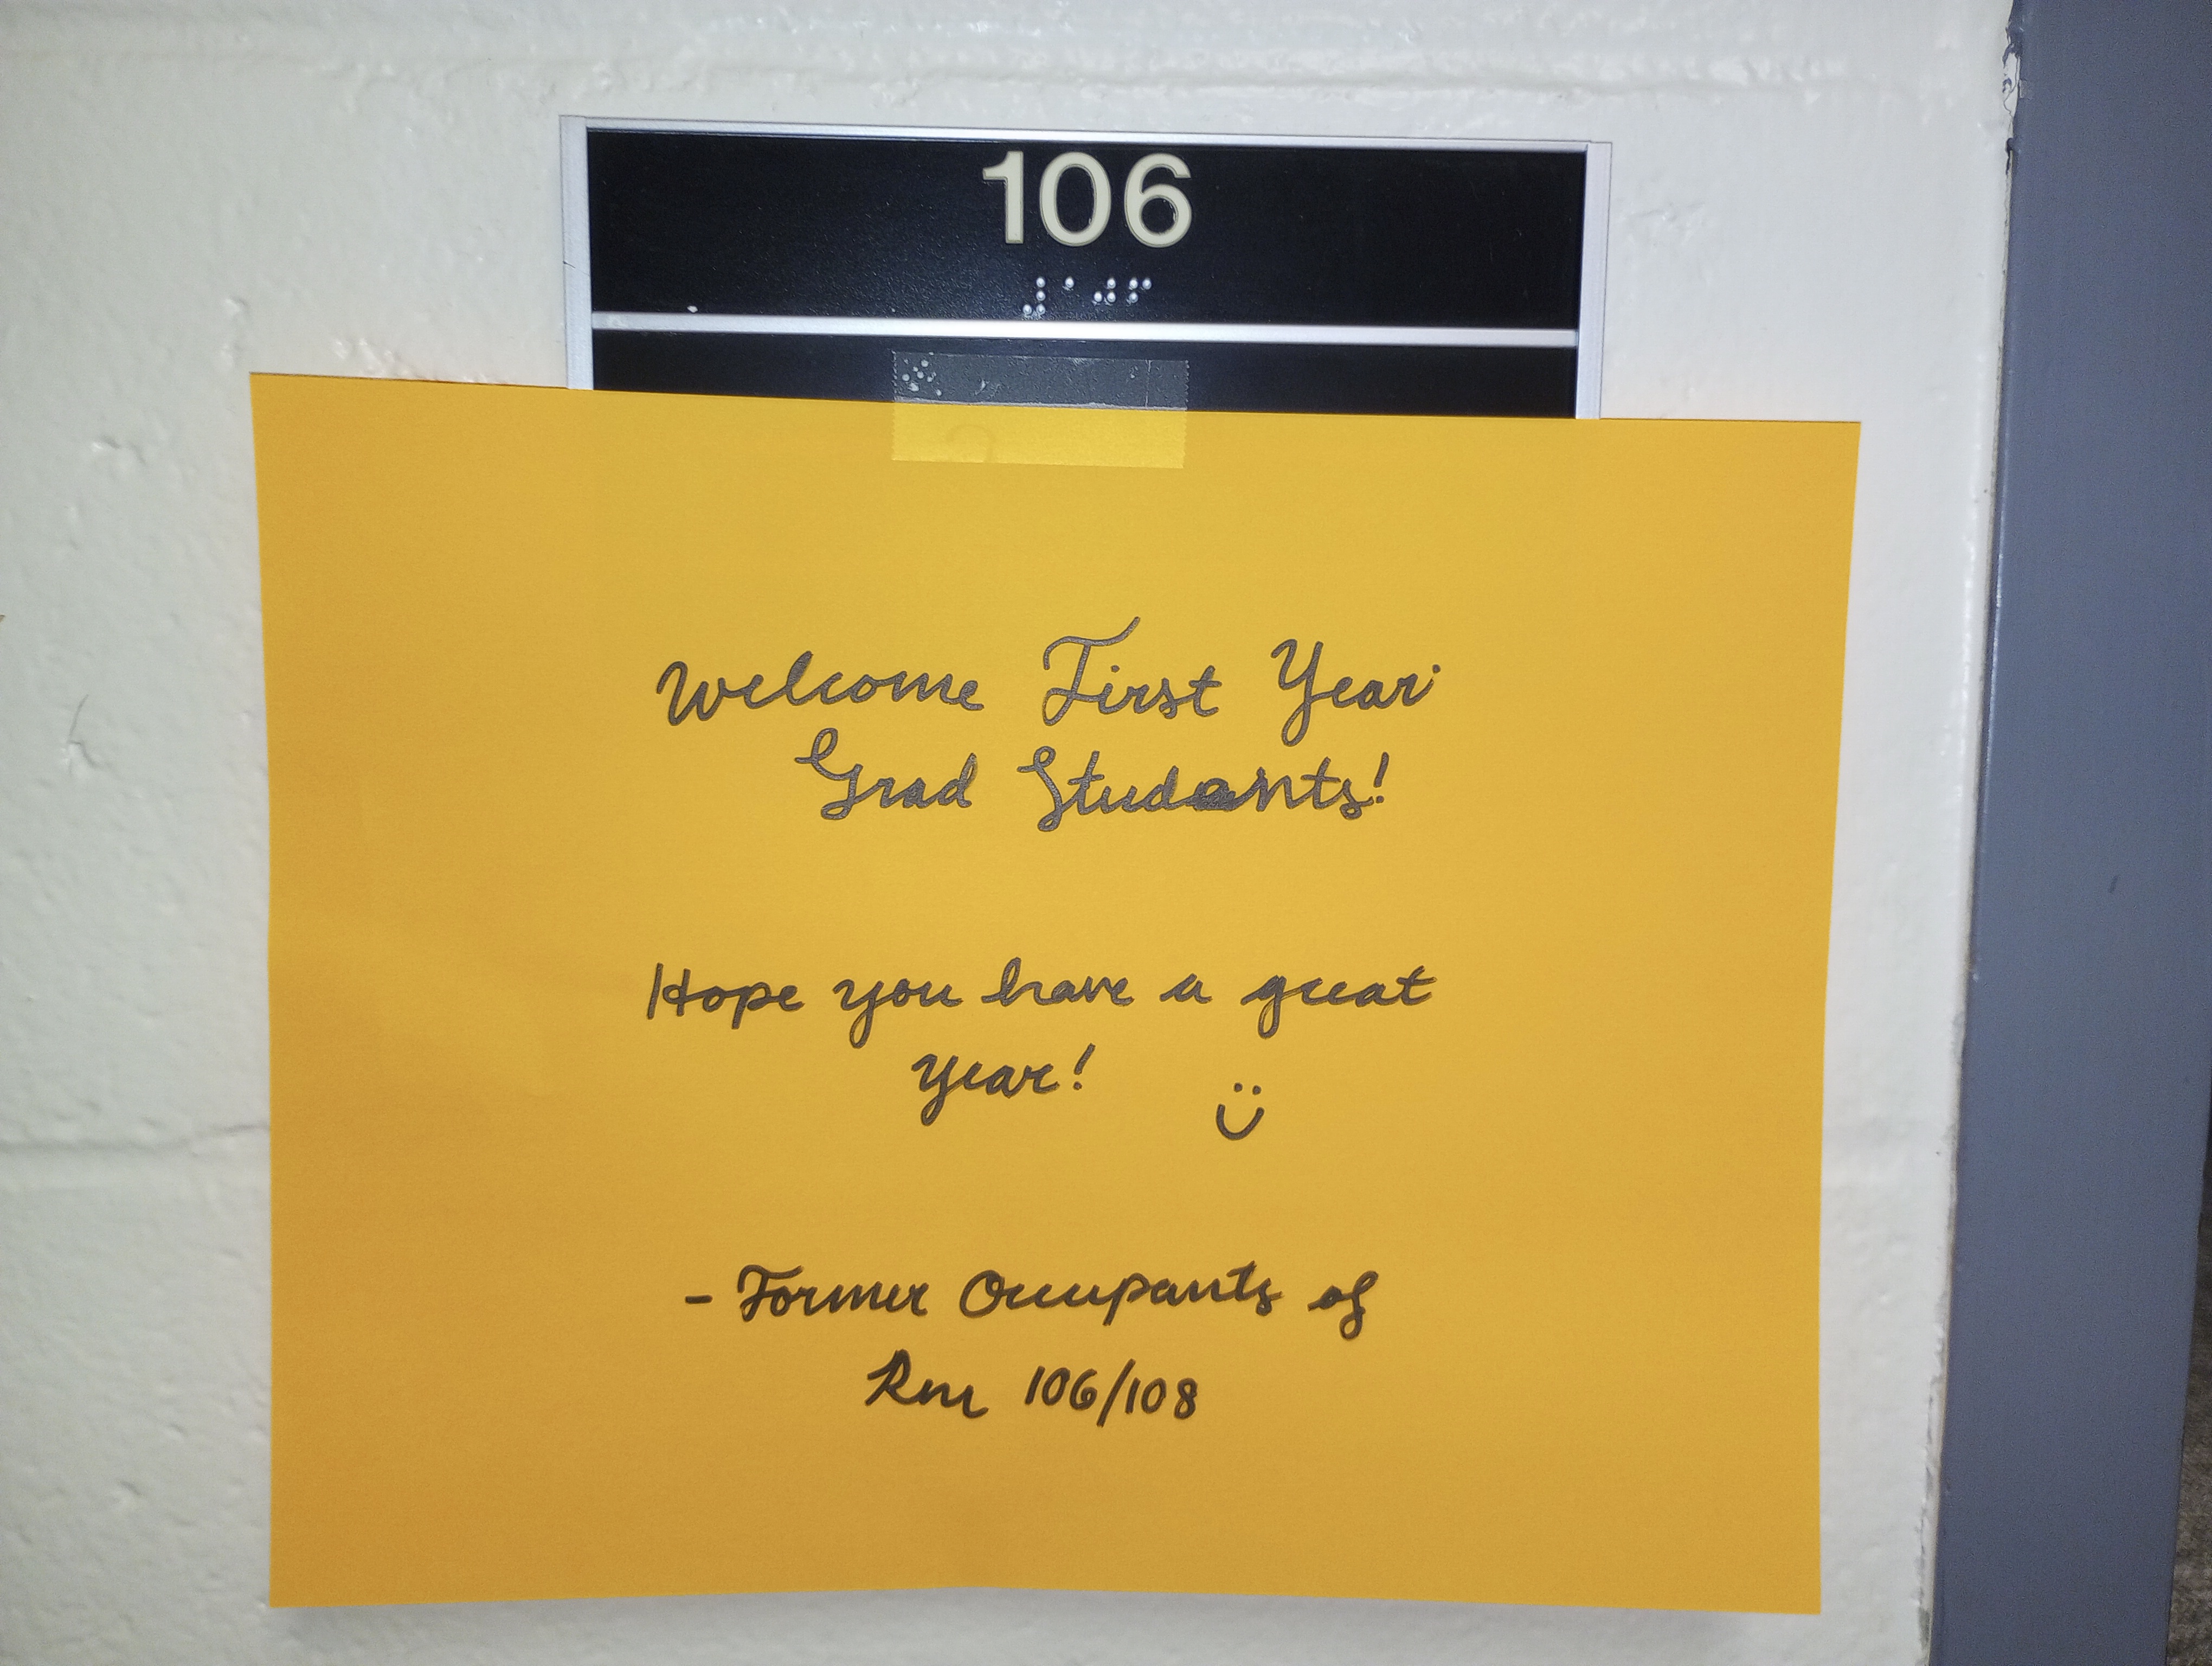 106
⠼⠁⠚⠋
Welcome First Year
Grad Students!
Hope you have a great
year! :)
- Former Occupants of
Rm 106/108